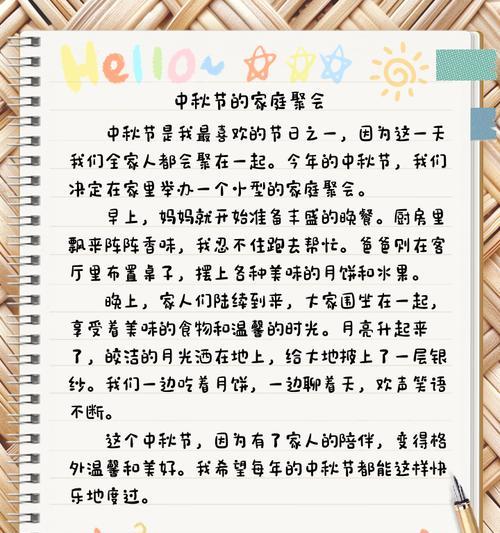 Hello~
中秋节的家庭聚会
中秋节是我最喜欢的节日之一，因为这一天
我们全家人都会聚在一起。今年的中秋节，我们
决定在家里举办一个小型的家庭聚会。
早上，妈妈就开始准备丰盛的晚餐。厨房里
飘来阵阵香味，我忍不住跑去帮忙。爸爸则在客
厅里布置桌子，摆上各种美味的月饼和水果。
晚上，家人们陆续到来，大家围坐在一起，
享受着美味的食物和温馨的时光。月亮升起来
了，皎洁的月光洒在地上，给大地披上了一层银
纱。我们一边吃着月饼，一边聊着天，欢声笑语
不断。
这个中秋节，因为有了家人的陪伴，变得格
外温馨和美好。我希望每年的中秋节都能这样快
乐地度过。